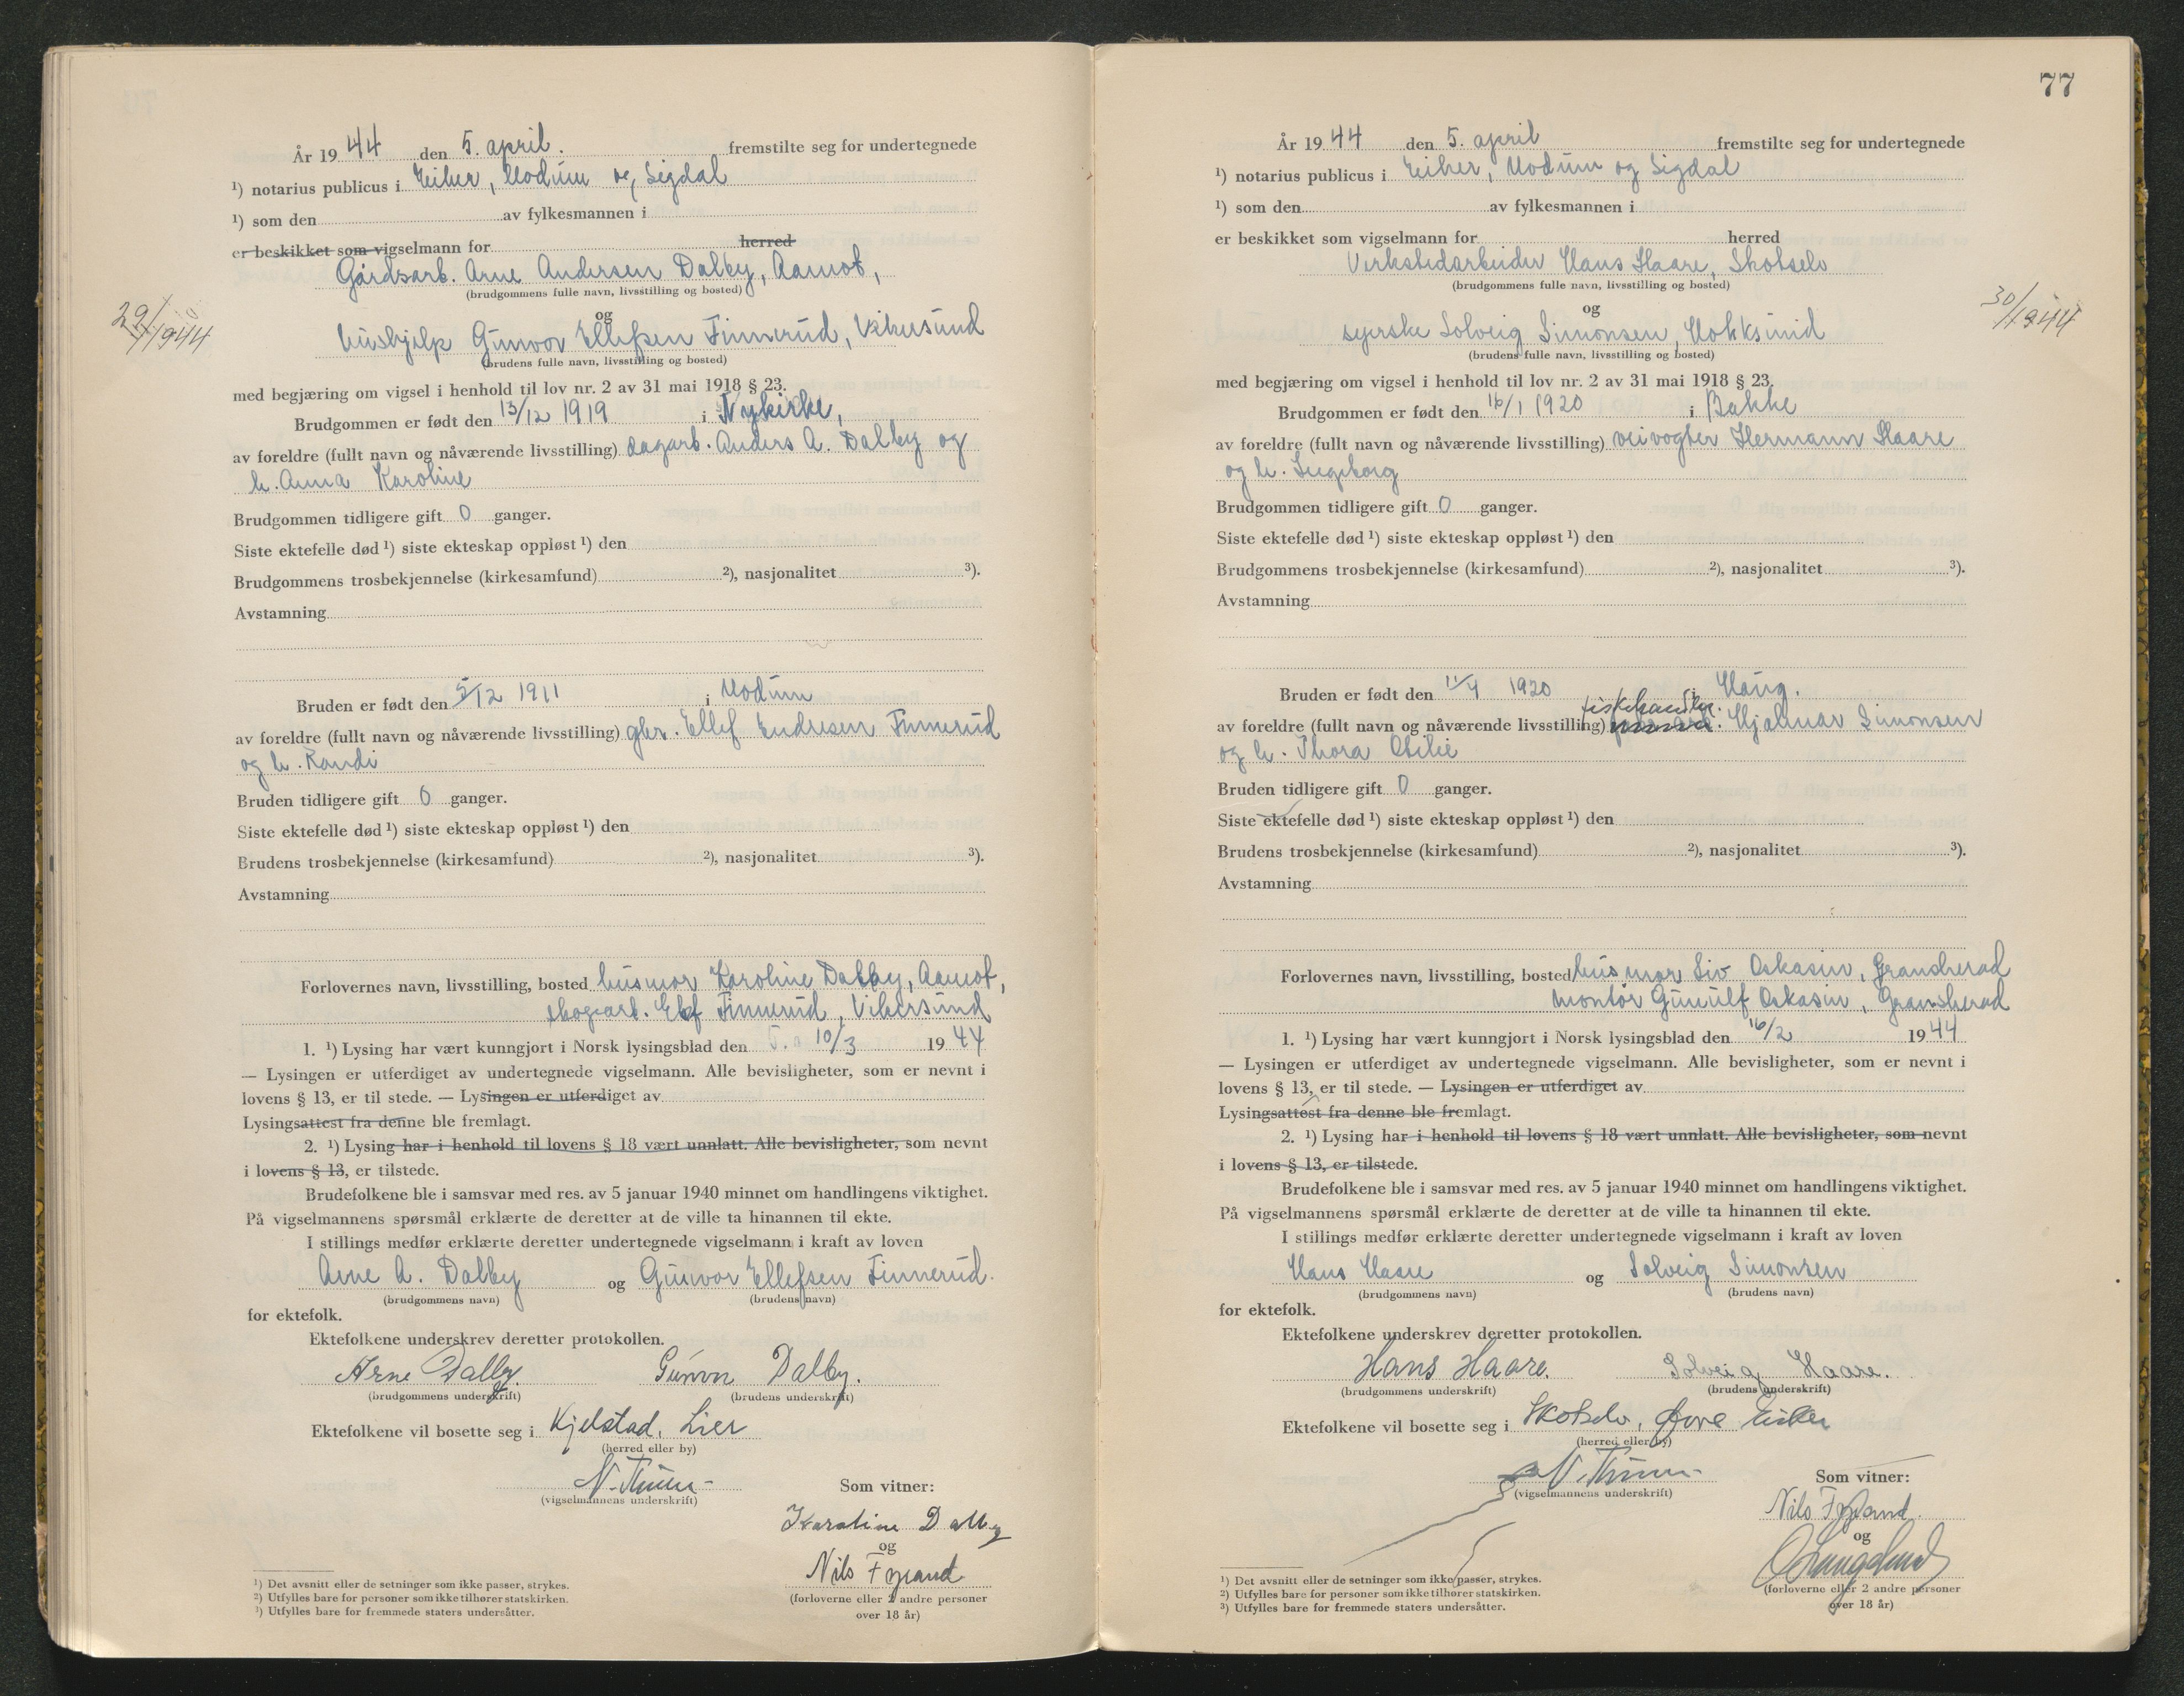 År 1944 den 5. april. fremstilte seg for undertegnede
¹) notarius publicus i Eiker, Modum og Sigdal
¹) som den av fylkesmannen i
er beskikket som vigselmann for herred
Gårdsarb. Arne Andersen Dalby, Aamot,
(brudgommens fulle navn, livsstilling og bosted)
29/1944
og
hushjelp Gunvor Ellefsen Finnerud, Vikersund
(brudens fulle navn, livsstilling og bosted)
med begjæring om vigsel i henhold til lov nr. 2 av 31 mai 1918 § 23.
Brudgommen er født den 13/12 1919 i Nykirke,
av foreldre (fullt navn og nåværende livsstilling) dagarb. Anders A. Dalby og
h. Anna Karoline
Brudgommen tidligere gift 0 ganger.
Siste ektefelle død ¹) siste ekteskap oppløst ¹) den
Brudgommens trosbekjennelse (kirkesamfund) ²), nasjonalitet ³).
Avstamning
Bruden er født den 5/12 1911 i Modum
av foreldre (fullt navn og nåværende livsstilling) gbr. Ellef Endresen Finnerud
og h. Randi
Bruden tidligere gift 0 ganger.
Siste ektefelle død ¹) siste ekteskap oppløst ¹) den
Brudens trosbekjennelse (kirkesamfund) ²), nasjonalitet ³).
Avstamning
Forlovernes navn, livsstilling, bosted husmor Karoline Dalby, Aamot,
skogarb. Ellef Finnerud, Vikersund
1. ¹) Lysing har vært kunngjort i Norsk lysingsblad den 10/3 1944
— Lysingen er utferdiget av undertegnede vigselmann. Alle bevisligheter, som er nevnt i
lovens § 13, er til stede. — Lysingen er utferdiget av
Lysingsattest fra denne ble fremlagt.
2. ¹) Lysing har i henhold til lovens § 18 vært unnlatt. Alle bevisligheter, som nevnt
i lovens § 13, er tilstede.
Brudefolkene ble i samsvar med res. av 5 januar 1940 minnet om handlingens viktighet.
På vigselmannens spørsmål erklærte de deretter at de ville ta hinannen til ekte.
I stillings medfør erklærte deretter undertegnede vigselmann i kraft av loven
Arne A. Dalby og Gunvor Ellefsen Finnerud.
(brudgommens navn) (brudens navn)
for ektefolk.
Ektefolkene underskrev deretter protokollen.
Arne Dalby. Gunvor Dalby.
(brudgommens underskrift) (brudens underskrift)
Ektefolkene vil bosette seg i Kjelstad, Lier
(herred eller by)
(vigselmannens underskrift)
Som vitner:
Karoline Dalby
og
Nils
(forloverne eller 2 andre personer
over 18 år)
¹) Det avsnitt eller de setninger som ikke passer, strykes.
²) Utfylles bare for personer som ikke tilhører statskirken.
³) Utfylles bare for fremmede staters undersåtter.
77
År 1944 den 5. april fremstilte seg for undertegnede
¹) notarius publicus i Eiker, Modum og Sigdal
¹) som den av fylkesmannen i
er beskikket som vigselmann for herred
Verkstedarbeider Hans Haare, Skotselv
(brudgommens fulle navn, livsstilling og bosted)
30/1944
og
syerske Solveig Simonsen, Hokksund
(brudens fulle navn, livsstilling og bosted)
med begjæring om vigsel i henhold til lov nr. 2 av 31 mai 1918 § 23.
Brudgommen er født den 16/1 1920 i Bakke
av foreldre (fullt navn og nåværende livsstilling) veivogter Hermann Haare
og h. Ingeborg
Brudgommen tidligere gift 0 ganger.
Siste ektefelle død ¹) siste ekteskap oppløst ¹) den
Brudgommens trosbekjennelse (kirkesamfund) ²), nasjonalitet ³).
Avstamning
Bruden er født den 11/4 1920 i Haug.
fiskehandler.
av foreldre (fullt navn og nåværende livsstilling) Hjalmar Simonsen
og h. Thora Otilie
Bruden tidligere gift 0 ganger.
Siste ektefelle død ¹) siste ekteskap oppløst ¹) den
Brudens trosbekjennelse (kirkesamfund) ²), nasjonalitet ³).
Avstamning
Forlovernes navn, livsstilling, bosted husmor Liv Oskasin, Gransherad
montør Gunulf Oskasin, Gransherad
1. ¹) Lysing har vært kunngjort i Norsk lysingsblad den 16/2 1944
— Lysingen er utferdiget av undertegnede vigselmann. Alle bevisligheter, som er nevnt i
lovens § 13, er til stede. — Lysingen er utferdiget av
Lysingsattest fra denne ble fremlagt.
2. ¹) Lysing har i henhold til lovens § 18 vært unnlatt. Alle bevisligheter, som nevnt
i lovens § 13, er tilstede.
Brudefolkene ble i samsvar med res. av 5 januar 1940 minnet om handlingens viktighet.
På vigselmannens spørsmål erklærte de deretter at de ville ta hinannen til ekte.
I stillings medfør erklærte deretter undertegnede vigselmann i kraft av loven
Hans Haare og Solveig Simonsen
(brudgommens navn) (brudens navn)
for ektefolk.
Ektefolkene underskrev deretter protokollen.
Hans Haare. Solveig Haare.
(brudgommens underskrift) (brudens underskrift)
Ektefolkene vil bosette seg i Skotselv, Øvre Eiker
(herred eller by)
(vigselmannens underskrift)
Som vitner:
Nils
og
(forloverne eller 2 andre personer
over 18 år)
¹) Det avsnitt eller de setninger som ikke passer, strykes.
²) Utfylles bare for personer som ikke tilhører statskirken.
³) Utfylles bare for fremmede staters undersåtter.